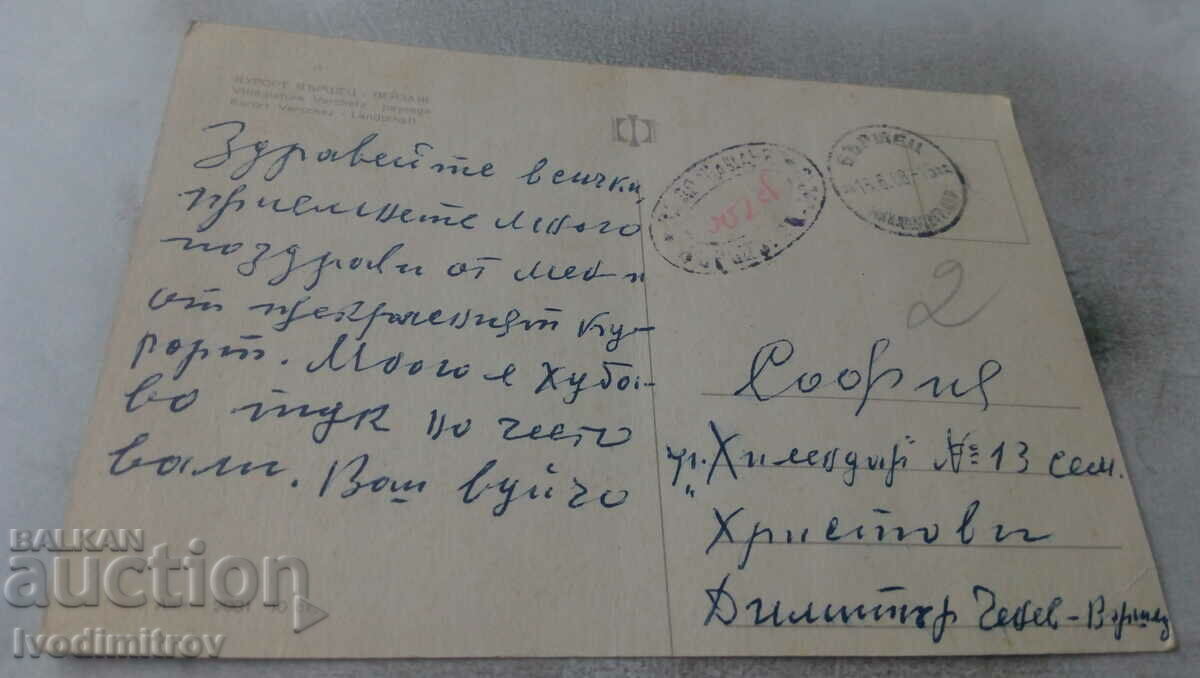 КУРОРТ ВЪРШЕЦ - ПЕЙЗАЖ
Villégiature Varchetz - paysage
Kurort Varschez - Landschaft
Здравейте всички,
приемнете много
поздрави от мен и
от прекрасният ку-
рорт. Много е хуба-
во тук но често
вали. Ваш вуйчо
ВЪРШЕЦ
2
София
ул. „Хилендар" № 13 сем.
Христови
Димитър Ценев - Вършец
BALKAN
auction
Ivodimitrov